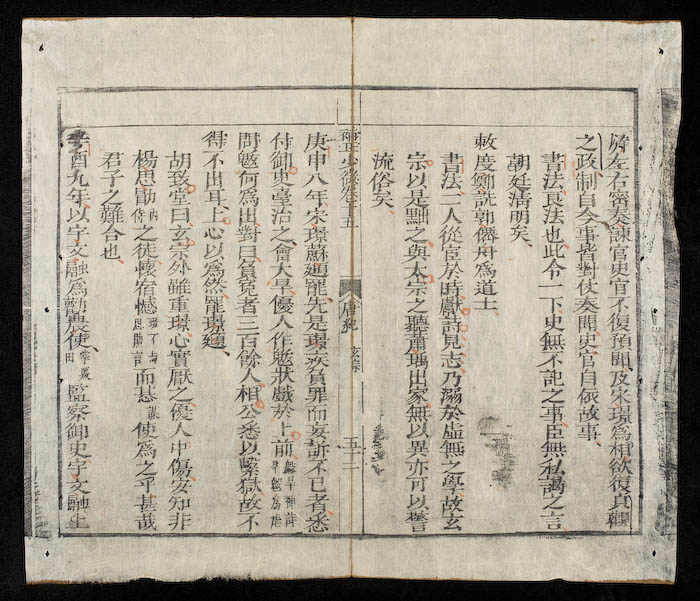 屏左右密奏諫官史官不復預聞及宋璟為相欲復貞觀
之政制自今事皆對仗奏聞史官自依故事
書法良法也此令一下史無不記之事臣無私謁之言
朝廷清明矣
敕度鄭銑郭僊舟為道士
書法二人從宦於時獻詩見志乃溺於虛無之學故玄
宗以是黜之與太宗之聽蕭瑀出家無以異亦可以警
流俗矣
卷十五
唐紀 玄宗
五十二
庚申八年宋璟蘇頲罷先是璟疾負罪而妄訴不已者悉
付御史臺治之會大旱優人作魃狀戲於上前
問魃何為出對曰負冤者三百餘人相公悉以繫獄故不
得不出耳上心以為然罷璟頲
胡致堂曰玄宗外雖重璟心實厭之優人中傷安知非
楊思勖內侍之徒懷宿憾而甚使為之乎甚哉
君子之難合也
辛酉九年以宇文融為勸農使監察御史宇文融上